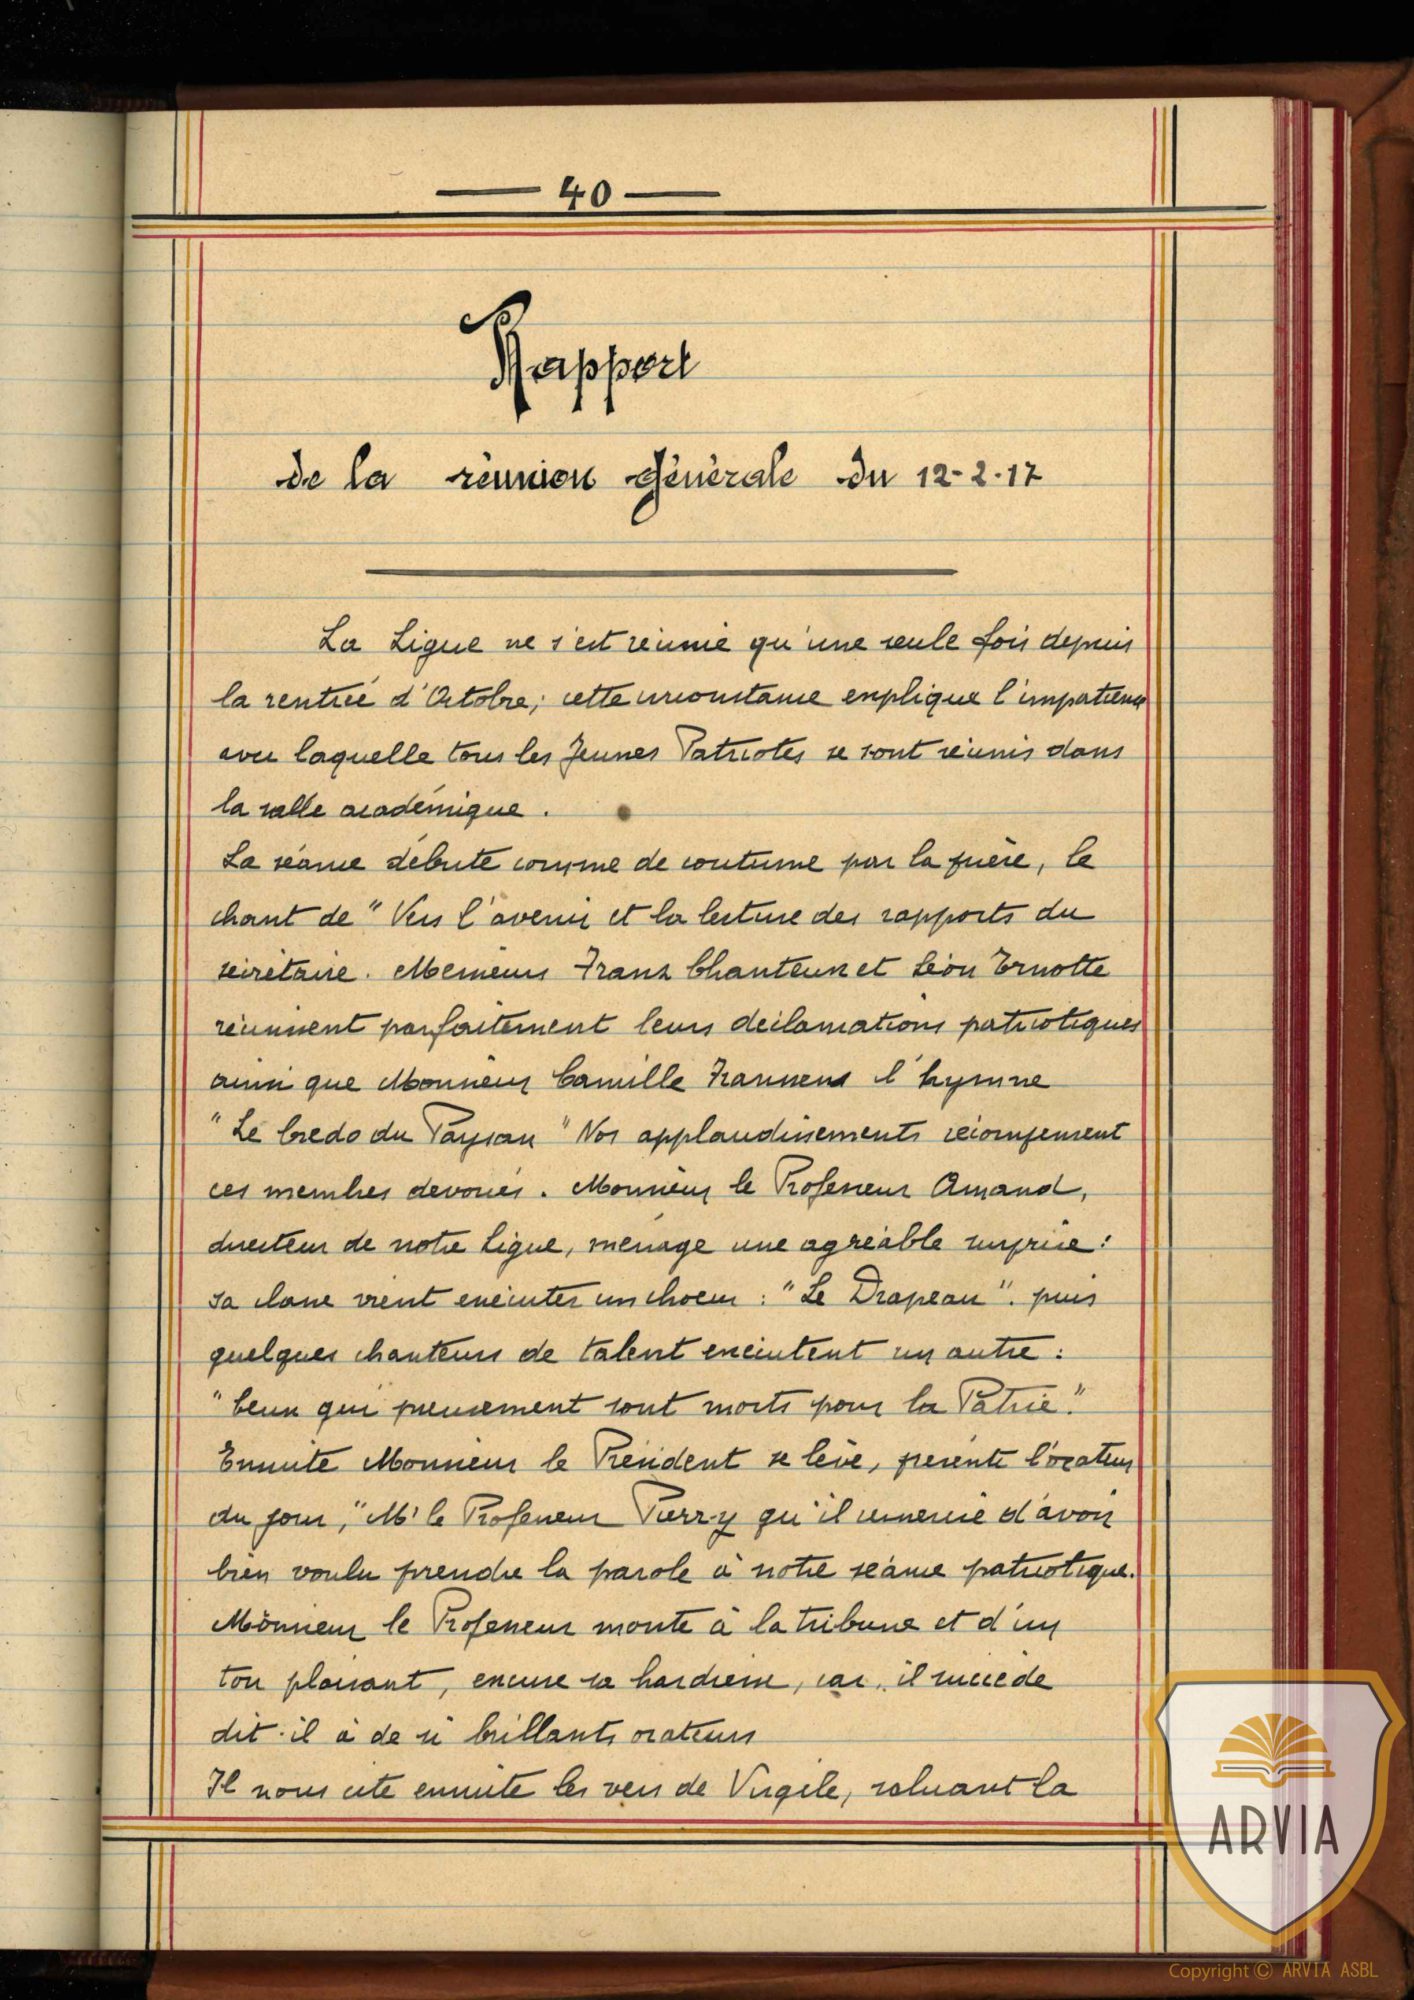 — 40 —
Rapport
de la réunion générale du 12-2-17
La Ligue ne s'est réunie qu'une seule fois depuis
la rentrée d'Octobre; cette circonstance explique l'impatience
avec laquelle tous les Jeunes Patriotes se sont réunis dans
la salle académique.
La séance débute comme de coutume par la prière, le
chant de "Vers l'avenir et la lecture des rapports du
secrétaire. Messieurs Franz Chanteux et Léon Ernotte
réunissent parfaitement leurs déclamations patriotiques
ainsi que Monsieur Camille Franssens l'hymne
"Le Credo du Paysan" Nos applaudissements récompensent
ces membres devoués. Monsieur le Professeur Amand,
directeur de notre Ligue, ménage une agréable surprise:
sa classe vient exécuter un choeur : "Le Drapeau". puis
quelques chanteurs de talent exécutent un autre:
"Ceux qui pieusement sont morts pour la Patrie".
Ensuite Monsieur le Président se lève, présente l'orateur
du jour, "Mr le Professeur Pierry qu'il remercie d'avoir
bien voulu prendre la parole à notre séance patriotique.
Monsieur le Professeur monte à la tribune et d'un
ton plaisant, excuse sa hardiesse, car, il succède
dit-il à de si brillants orateurs
Il nous cite ensuite les vers de Virgile, saluant la
ARVIA
Copyright © ARVIA ASBL